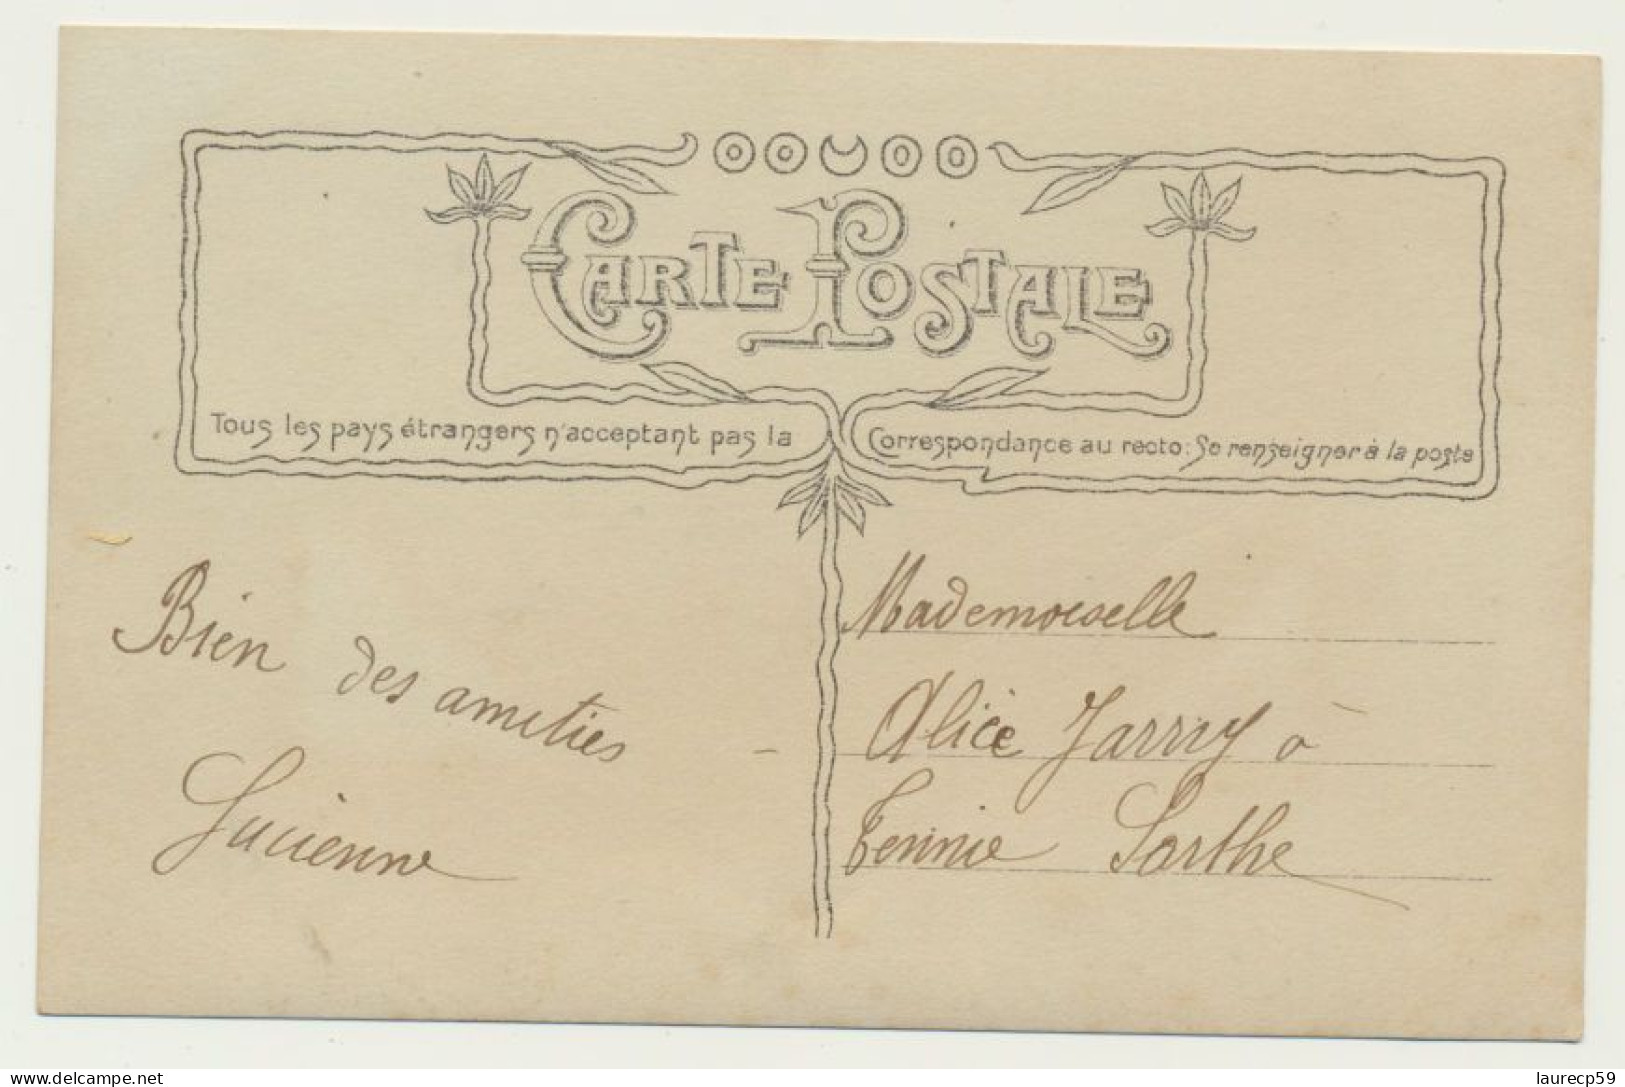 CARTE POSTALE
Tous les pays étrangers n'acceptant pas la Correspondance au recto: Se renseigner à la poste
Bien des ametiés
Lucienne
Mademoiselle
Alice Jarry à
Tennie Sarthe
> delcampe.net
laurecp59